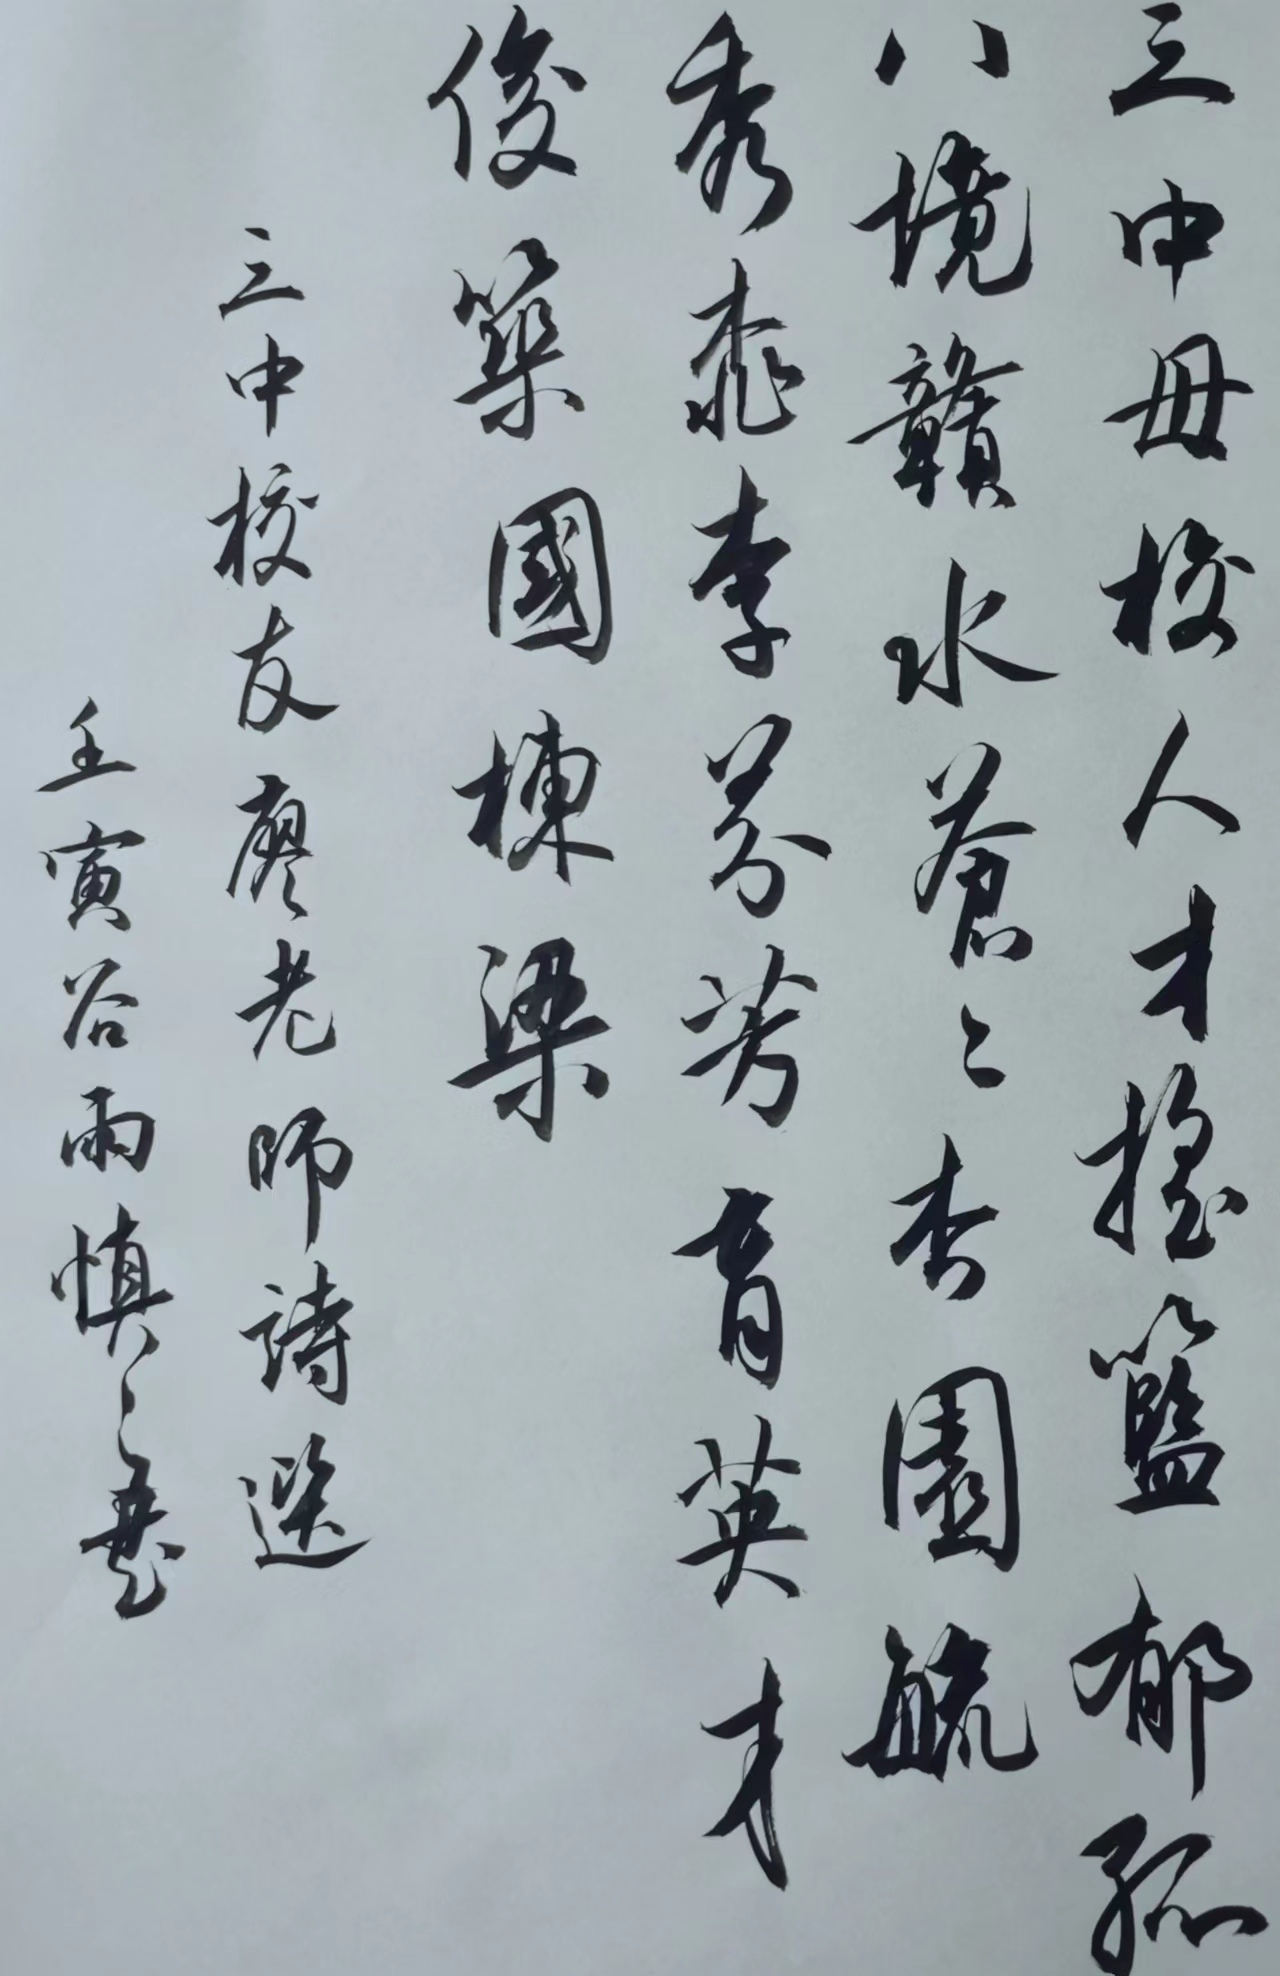 三中母校人才搖籃郁孤
八境贛水蒼々杏園毓
秀桃李芬芳育英才
俊築國棟梁
三中校友廖老師詩選
壬寅谷雨慎之書